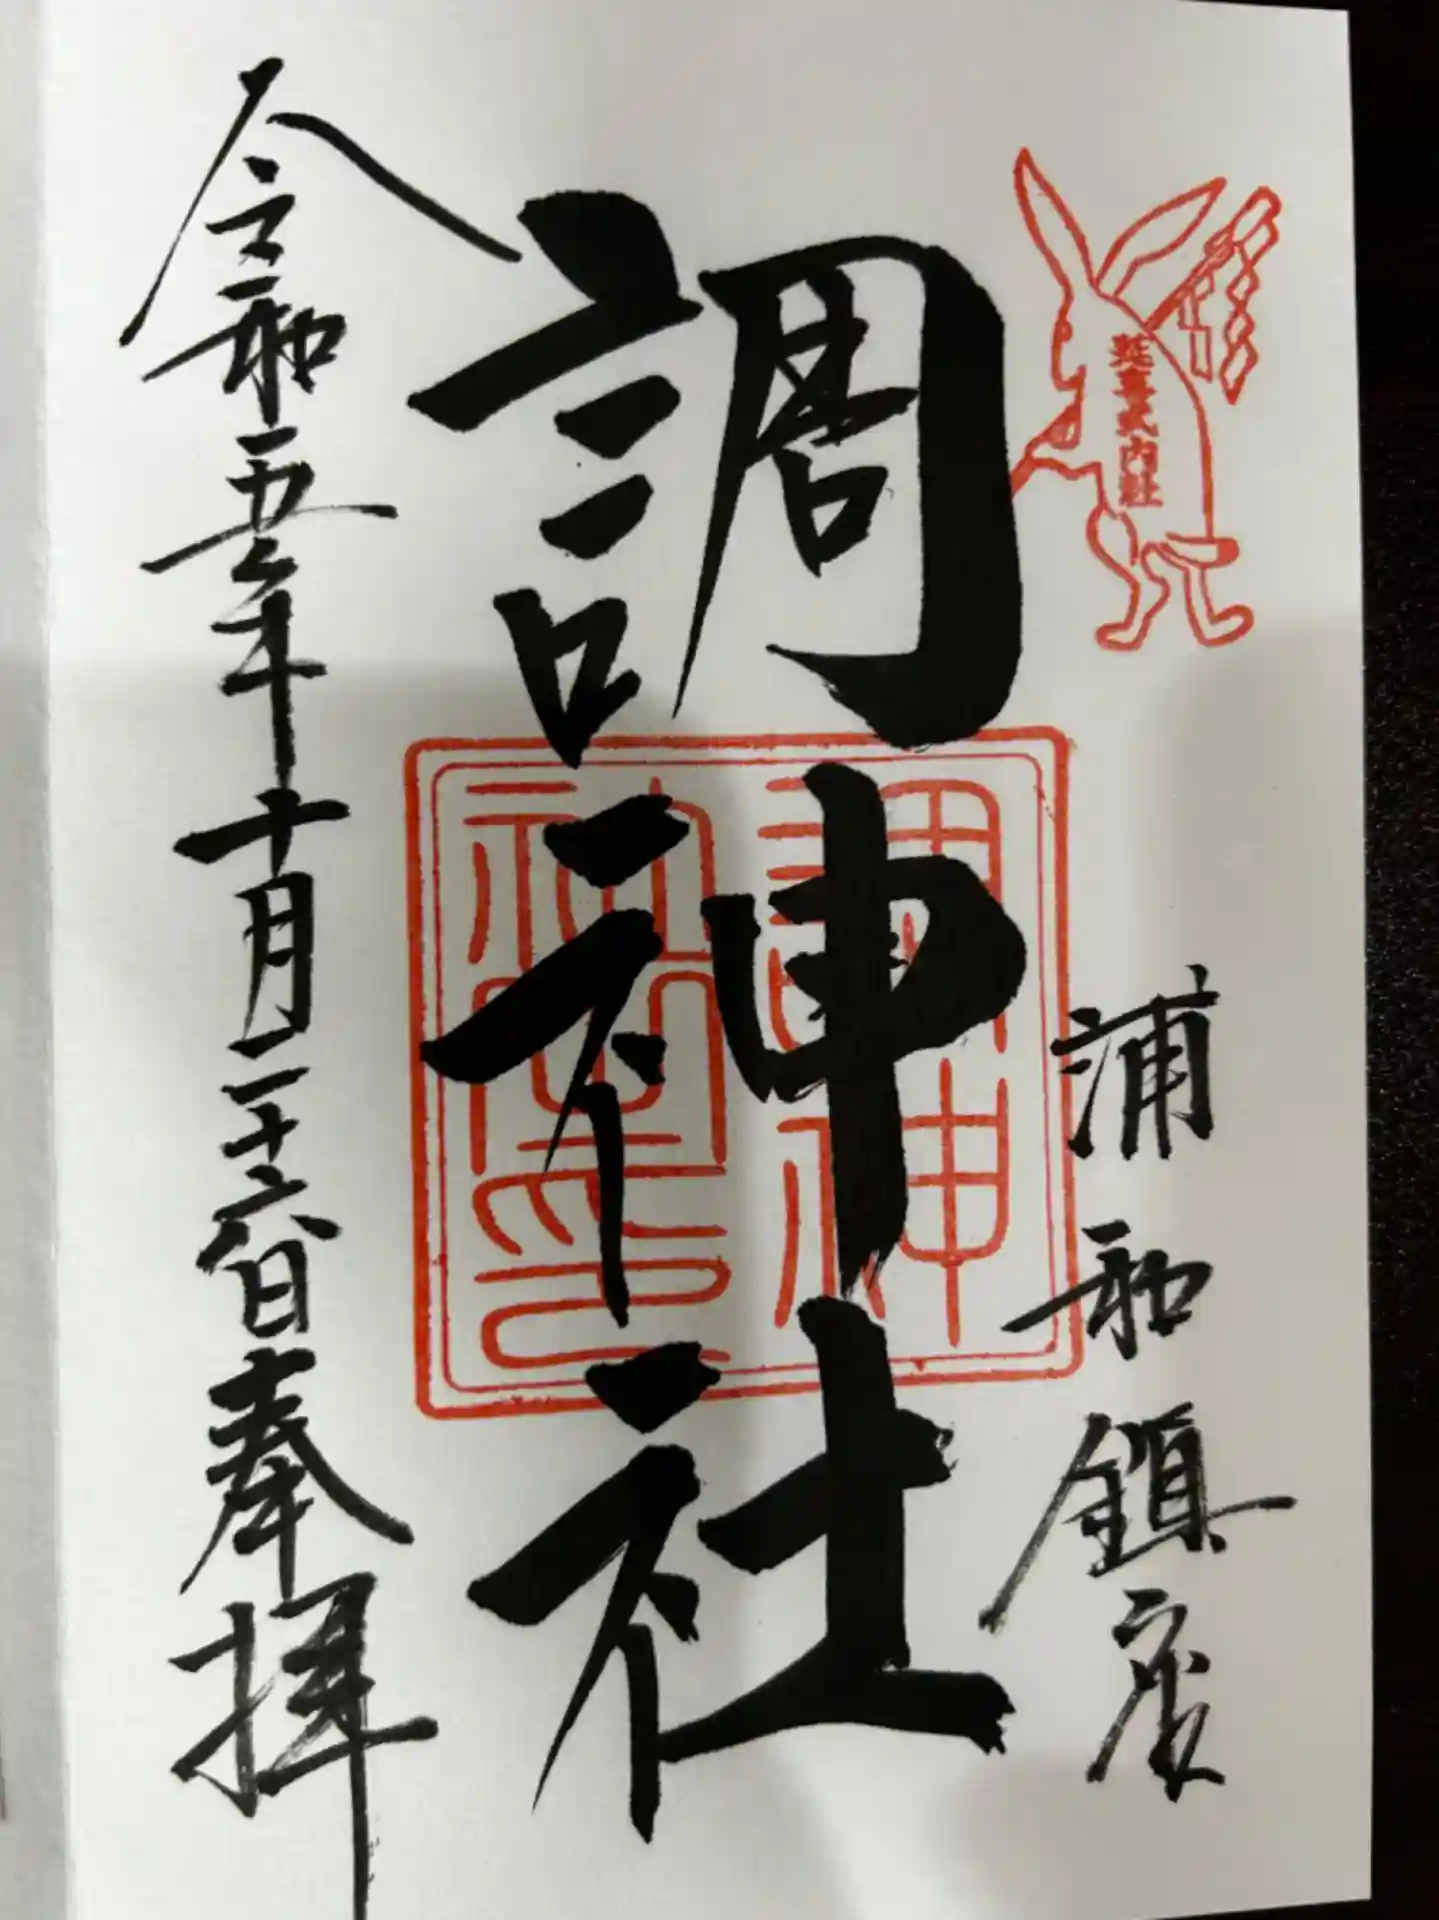 延喜式内社
浦和鎮座
調神社
調神社之印
令和五年十月二十六日奉拝